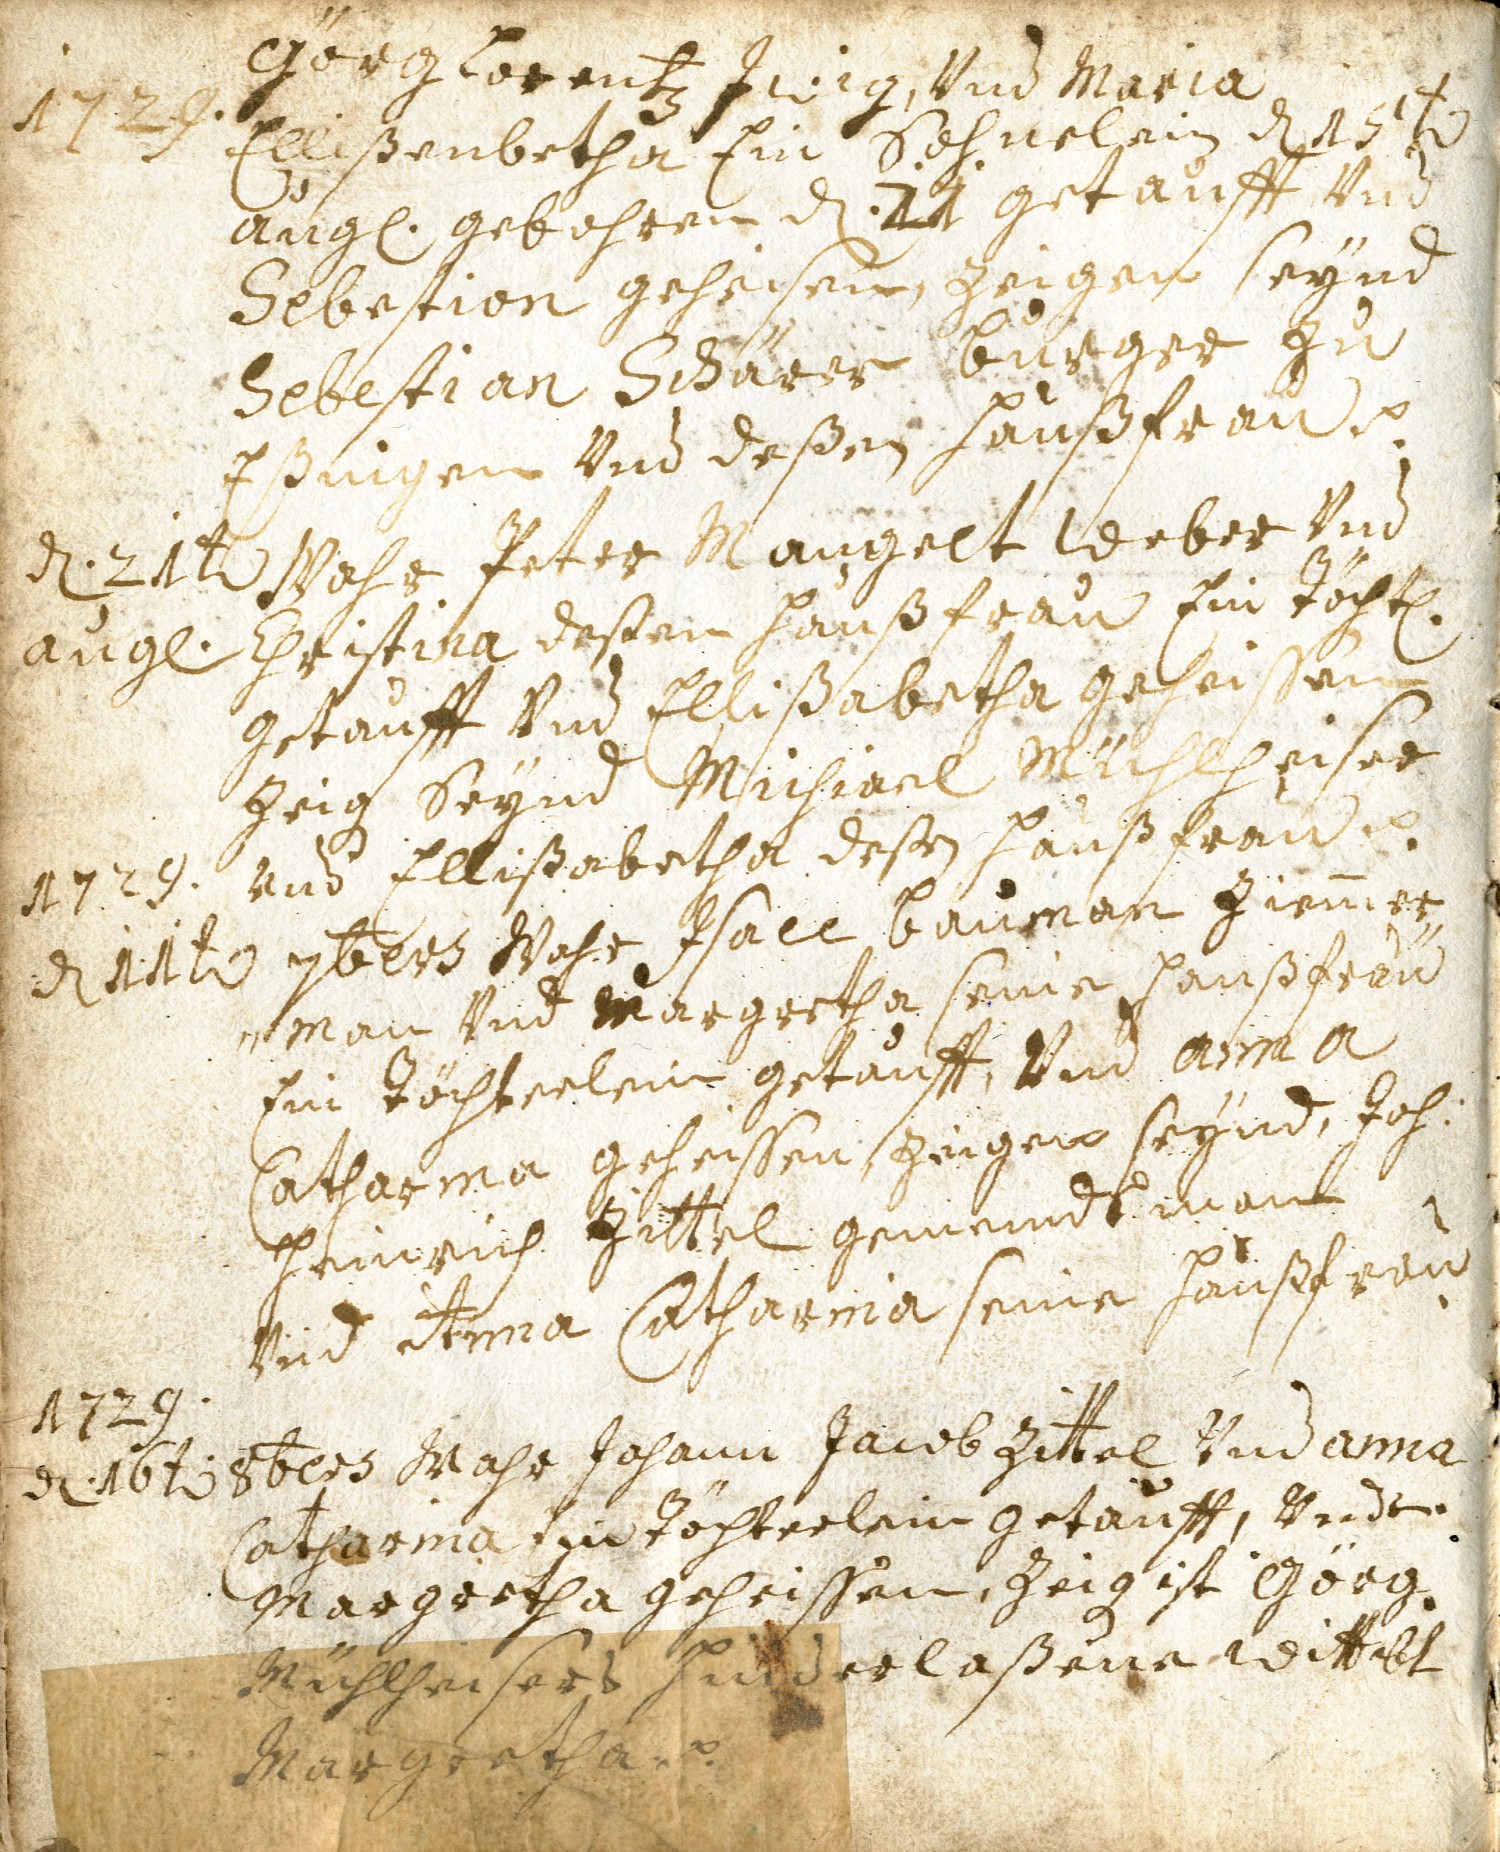 Görg Lorentz Jung, Vnd Maria
1729. Ellißenbetha Ein Sohnelein d 15t
augl. gebohren d. 21 getaufft Vnd
Sebestion geheisen, Zeigen seÿnd
Sebestian Schärer burger Zu
Eßingen Vnd deßen Haußfrau
d. 21t Wahr Peter Mangelt weber Vnd
augl. Christina deßen Haußfrau Ein Töchtl.
getaufft Vnd Ellißabetha geheissen
Zeig Seÿnd Michiael Mühlheiser
1729. Vnd Ellißabetha deßen Haußfrau
d 11t 7bers Wahr Isacc bauman Ziem̄er
man Vnd Margretha seine Haußfrau
Ein Töchterlein getaufft, Vnd anna
Catharina geheissen, Zeigen seÿnd, Joh:
Heinrich Zittel gemeindsman
Vnd Anna Catharina seine Haußfrau
1729.
d. 16t 8bers Wahr Johann Jacob Zittel Vnd anna
Catharina Ein Töchterlein getaufft, Vnd
Margretha geheissen, Zeig ist Görg
Mühlheisers hinderlaßene wittib
Margretha